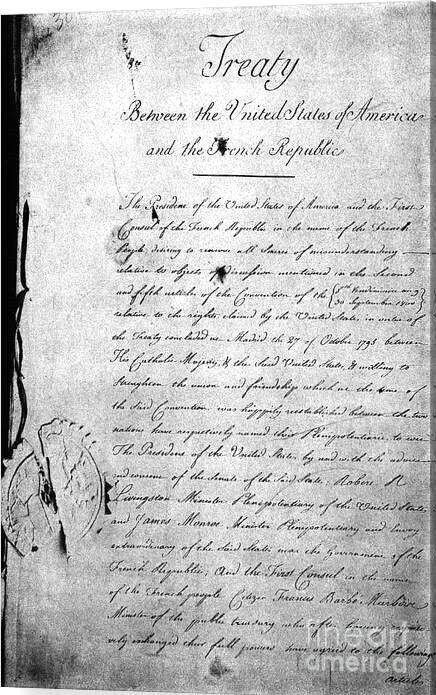 30
Treaty
Between the United States of America
and the French Republic
The President of the United States of America and the First
Consul of the French Republic in the name of the French
People desiring to remove all Source of misunderstanding
relative to objects of discussion mentioned in the Second
and fifth articles of the Convention of the (8th Vendémiaire an 9
30 September 1800)
relative to the rights claimed by the United States in virtue of
the Treaty concluded at Madrid the 27 of October 1795 between
His Catholic Majesty, & the Said United States, & willing to
Strengthen the union and friendship which at the time of
the Said Convention was happily reestablished between the two
nations have respectively named their Plenipotentiaries to wit
The President of the United States, by and with the advice
and consent of the Senate of the Said States; Robert R
Livingston Minister Plenipotentiary of the United States
and James Monroe Minister Plenipotentiary and Envoy
extraordinary of the Said States near the Government of the
French Republic; And the First Consul in the name
of the French people, Citizen Francis Barbé Marbois
Minister of the public treasury who after having respecti-
vely exchanged their full powers have agreed to the following
articles
fineart
america